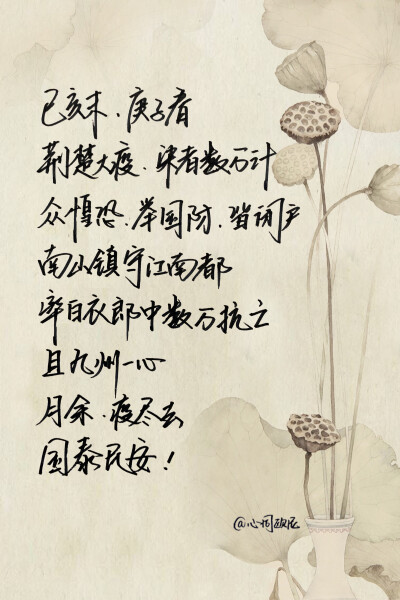 己亥末、庚子春
荆楚大疫、染者数万计
众惶恐、举国防、皆闭户
南山镇守江南都
率白衣郎中数万抗亡
且九州一心
月余、疫尽去
国泰民安！